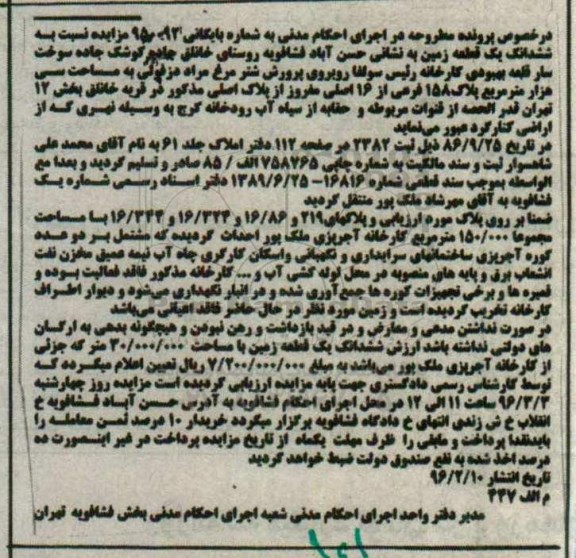 درخصوص پرونده مطروحه در اجرای احکام مدنی به شماره بایگانی ۹۳۰-۹۵ مزایده نسبت به
ششدانگ یک قطعه زمین به نشانی حسن آباد فشافویه روستای خانلق جاده کوشک جاده سوخت
سار قلعه بهبودی کارخانه رئیس سولفا روبروی پرورش شتر مرغ مراد دزفولی به مساحت سی
هزار مترمربع پلاک ۱۵۸ فرعی از ۱۶ اصلی مفروز از پلاک اصلی مذکور در قریه خانلق بخش ۱۲
تهران قدر الحصه از قنوات مربوطه و حقابه از سیاه آب رودخانه کرج به وسیله نهری که از
اراضی کنارگرد عبور می‌نماید
در تاریخ ۸۶/۹/۲۵ ذیل ثبت ۲۳۸۲ در صفحه ۱۱۲ دفتر املاک جلد ۶۱ به نام آقای محمد علی
شاهسوار ثبت و سند مالکیت به شماره چاپی ۷۵۸۷۶۵ الف / ۸۵ صادر و تسلیم گردید و بعدا مع
الواسطه بموجب سند قطعی شماره ۱۶۸۱۶- ۱۳۸۹/۶/۲۵ دفتر اسناد رسمی شماره یک
فشافویه به آقای مهرشاد ملک پور منتقل گردید
ضمنا بر روی پلاک مورد ارزیابی و پلاکهای ۲۱۹ و ۱۶/۸۶ و ۱۶/۳۲۳ و ۱۶/۳۴۴ با مساحت
مجموعا ۱۵۰/۰۰۰ مترمربع کارخانه آجرپزی ملک پور احداث گردیده که مشتمل بر دو عدد
کوره آجرپزی ساختمانهای سرایداری و نگهبانی واسکان کارگری چاه آب نیمه عمیق مخزن نفت
انشعاب برق و پایه های منصوبه در محل لوله کشی آب و ... کارخانه مذکور فاقد فعالیت بوده و
قمبره ها و برخی تجهیزات کوره ها جمع‌آوری شده و در انبار نگهداری می‌شود و دیوار اطراف
کارخانه تخریب گردیده است و زمین مورد نظر در حال حاضر فاقد اعیانی می‌باشد
در صورت نداشتن مدعی و معارض و در قید بازداشت و رهن نبودن و هیچگونه بدهی به ارگان
های دولتی نداشته باشد ارزش ششدانگ یک قطعه زمین با مساحت ۳۰/۰۰۰/۰۰۰ متر که جزئی
از کارخانه آجرپزی ملک پور می‌باشد به مبلغ ۷/۲۰۰/۰۰۰/۰۰۰ ریال تعیین اعلام میگردد که
توسط کارشناس رسمی دادگستری جهت پایه مزایده ارزیابی گردیده است مزایده روز چهارشنبه
۹۶/۳/۳ ساعت ۱۱ الی ۱۲ در محل اجرای احکام فشافویه به آدرس حسن آباد فشافویه خ
انقلاب خ ش زندی انتهای خ دادگاه فشافویه برگزار میگردد خریدار ۱۰ درصد ثمن معامله را
بایدنقدا پرداخت و مابقی را ظرف مهلت یکماه از تاریخ مزایده پرداخت در غیر اینصورت ده
درصد اخذ شده به نفع صندوق دولت ضبط خواهد گردید
تاریخ انتشار ۹۶/۲/۱۰
م الف ۳۴۷
مدیر دفتر واحد اجرای احکام مدنی شعبه اجرای احکام مدنی بخش فشافویه تهران